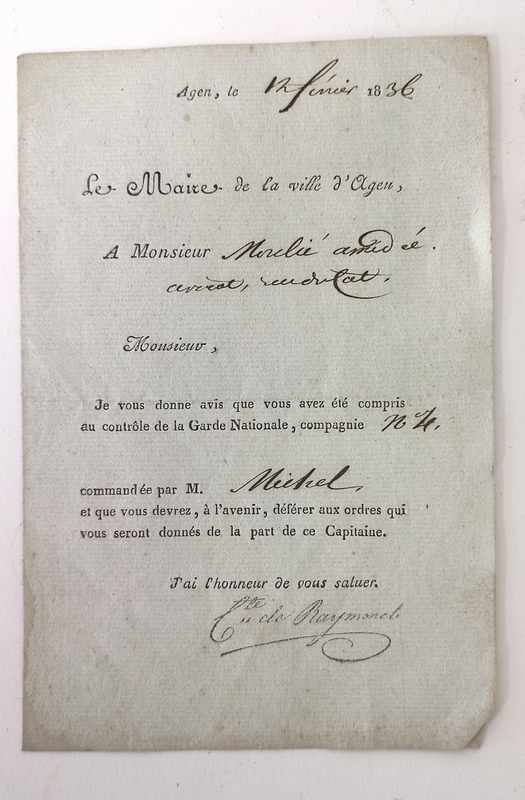 Agen, le 12 février 1836
Le Maire de la ville d'Agen,
A Monsieur Moulié amédée.
avocat,
Monsieur,
Je vous donne avis que vous avez été compris
au contrôle de la Garde Nationale, compagnie n°4.
commandée par M. Michel,
et que vous devrez, à l'avenir, déférer aux ordres qui
vous seront donnés de la part de ce Capitaine.
J'ai l'honneur de vous saluer.
Cte de Raymond